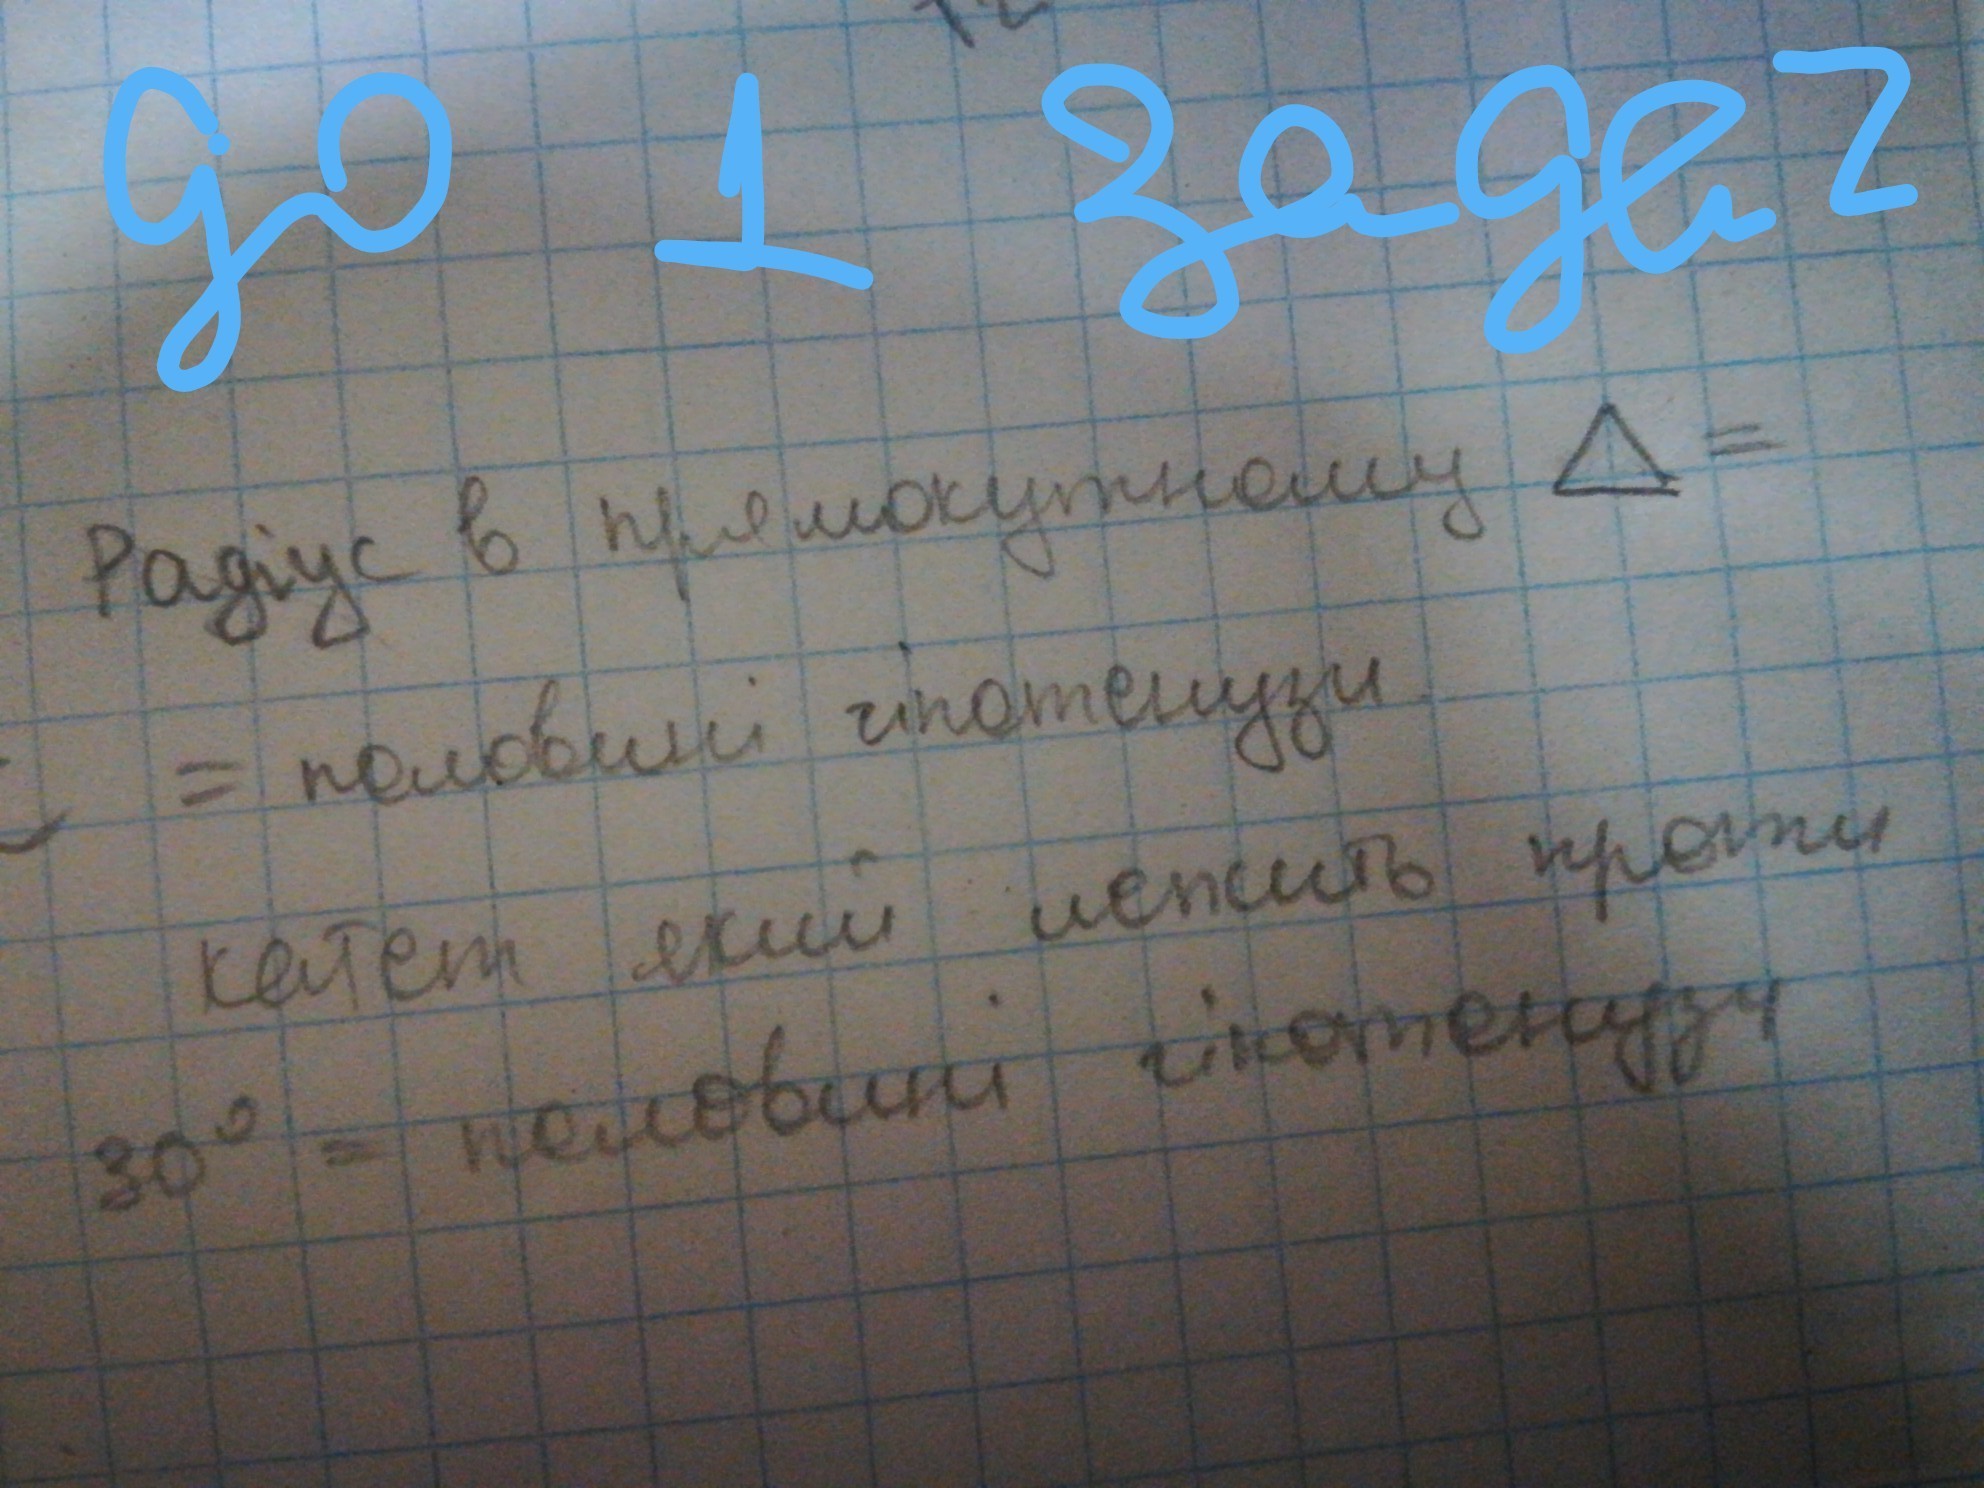 до 1 задачі
Радіус в прямокутному △ =
= половині гіпотенузи
катет який лежить проти
30° = половині гіпотенузи